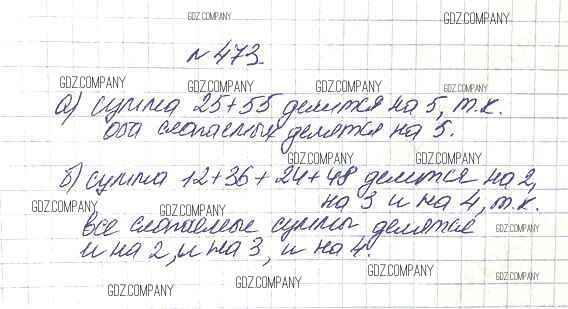 GDZ.COMPANY
GDZ.COMPANY
№ 473.
GDZ.COMPANY GDZ.COMPANY GDZ.COMPANY GDZ.COMPANY
а) сумма 25+55 делится на 5, т.к.
оба слагаемых делятся на 5.
GDZ.COMPANY GDZ.COMPANY
б) сумма 12+36+24+48 делится на 2,
на 3 и на 4, т.к.
GDZ.COMPANY GDZ.COMPANY
все слагаемые суммы делятся
GDZ.COMPANY
и на 2, и на 3, и на 4.
GDZ.COMPANY GDZ.COMPANY
GDZ.COMPANY GDZ.COMPANY